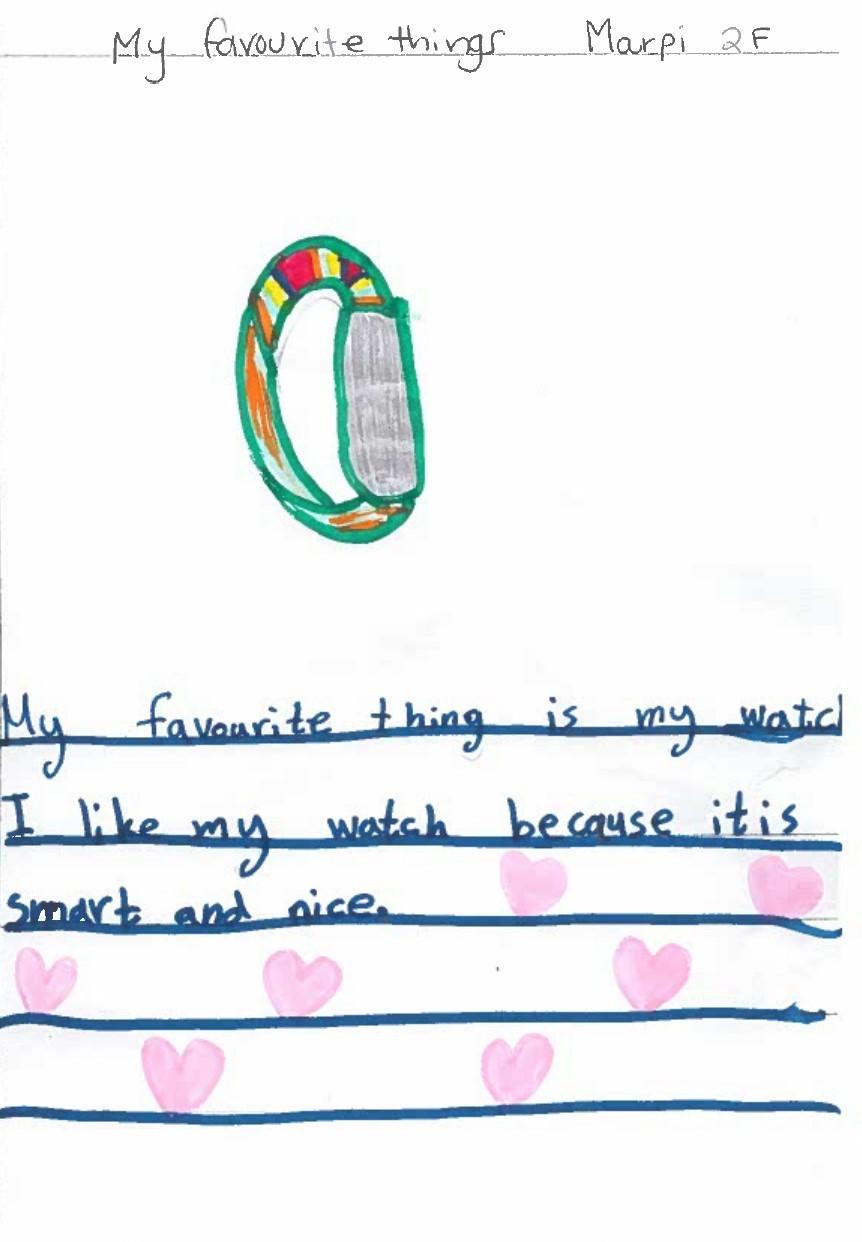 My favourite things Marpi 2F
My favourite thing is my watc
I like my watch because it is
smart and nice.